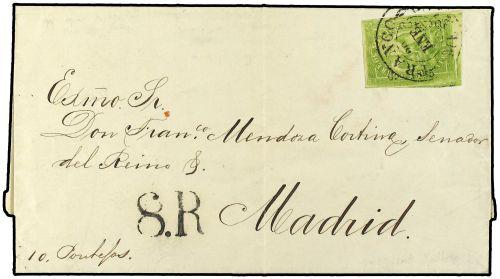 FRANCO
Exmo. Sr.
Don Franco Mendoza Cortina, Senador
del Reino &.
S.R Madrid.
10. Pontejos.